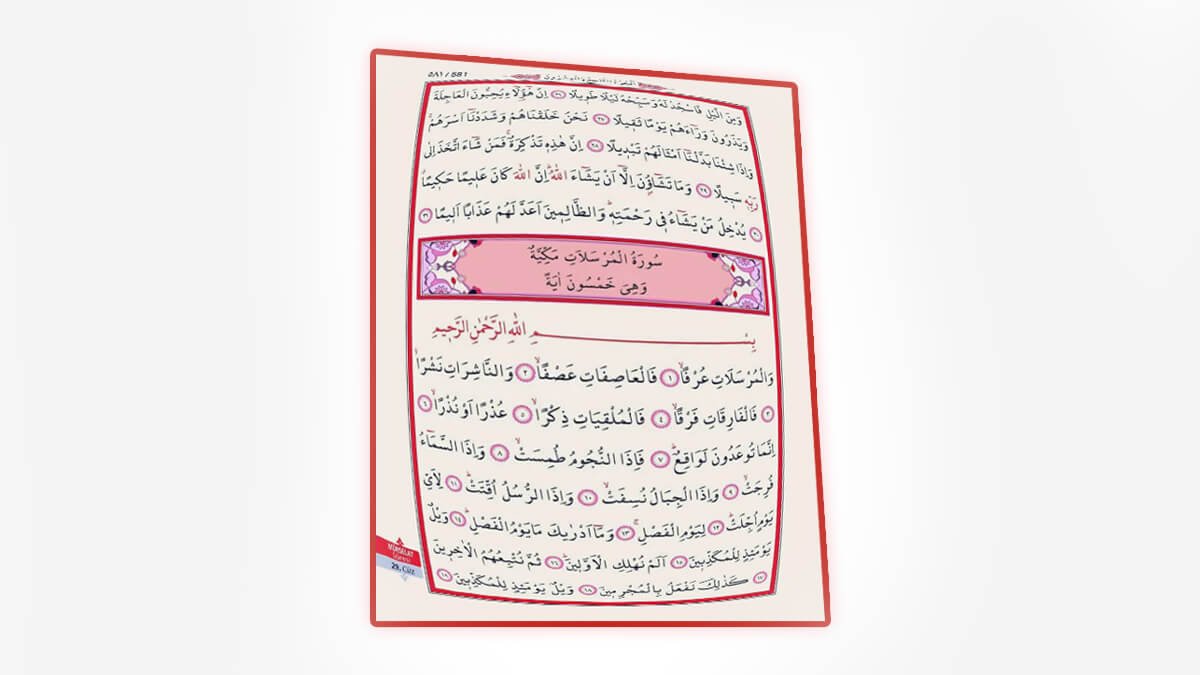 ٥٨١ / 581
وَمِنَ الَّيْلِ فَاسْجُدْ لَهُ وَسَبِّحْهُ لَيْلًا طَوِيلًا ﴿٢٦﴾ اِنَّ هٰٓؤُ۬لَٓاءِ يُحِبُّونَ الْعَاجِلَةَ
وَيَذَرُونَ وَرَٓاءَهُمْ يَوْمًا ثَقِيلًا ﴿٢٧﴾ نَحْنُ خَلَقْنَاهُمْ وَشَدَدْنَٓا اَسْرَهُمْۚ
وَاِذَا شِئْنَا بَدَّلْنَٓا اَمْثَالَهُمْ تَبْدِيلًا ﴿٢٨﴾ اِنَّ هٰذِهِ تَذْكِرَةٌۚ فَمَنْ شَٓاءَ اتَّخَذَ اِلٰى
رَبِّهِ سَبِيلًا ﴿٢٩﴾ وَمَا تَشَٓاؤُ۫نَ اِلَّٓا اَنْ يَشَٓاءَ اللّٰهُۜ اِنَّ اللّٰهَ كَانَ عَلِيمًا حَكِيمًاۗ
﴿٣٠﴾ يُدْخِلُ مَنْ يَشَٓاءُ فِي رَحْمَتِهِۜ وَالظَّالِمِينَ اَعَدَّ لَهُمْ عَذَابًا اَلِيمًا ﴿٣١﴾
سُورَةُ الْمُرْسَلَاتِ مَكِّيَّةٌ
وَهِيَ خَمْسُونَ اٰيَةً
بِسْمِ اللّٰهِ الرَّحْمٰنِ الرَّحِيمِ
وَالْمُرْسَلَاتِ عُرْفًاۙ ﴿١﴾ فَالْعَاصِفَاتِ عَصْفًاۙ ﴿٢﴾ وَالنَّاشِرَاتِ نَشْرًاۙ
﴿٣﴾ فَالْفَارِقَاتِ فَرْقًاۙ ﴿٤﴾ فَالْمُلْقِيَاتِ ذِكْرًاۙ ﴿٥﴾ عُذْرًا اَوْ نُذْرًاۙ ﴿٦﴾
اِنَّمَا تُوعَدُونَ لَوَاقِعٌۜ ﴿٧﴾ فَاِذَا النُّجُومُ طُمِسَتْۙ ﴿٨﴾ وَاِذَا السَّمَٓاءُ
فُرِجَتْۙ ﴿٩﴾ وَاِذَا الْجِبَالُ نُسِفَتْۙ ﴿١٠﴾ وَاِذَا الرُّسُلُ اُقِّتَتْۜ ﴿١١﴾ لِاَيِّ
يَوْمٍ اُجِّلَتْۜ ﴿١٢﴾ لِيَوْمِ الْفَصْلِۚ ﴿١٣﴾ وَمَٓا اَدْرٰيكَ مَا يَوْمُ الْفَصْلِۜ ﴿١٤﴾ وَيْلٌ
يَوْمَئِذٍ لِلْمُكَذِّبِينَ ﴿١٥﴾ اَلَمْ نُهْلِكِ الْاَوَّلِينَۜ ﴿١٦﴾ ثُمَّ نُتْبِعُهُمُ الْاٰخِرِينَ
﴿١٧﴾ كَذٰلِكَ نَفْعَلُ بِالْمُجْرِمِينَ ﴿١٨﴾ وَيْلٌ يَوْمَئِذٍ لِلْمُكَذِّبِينَ ﴿١٩﴾
MÜRSELAT
Sûresi
29. Cüz